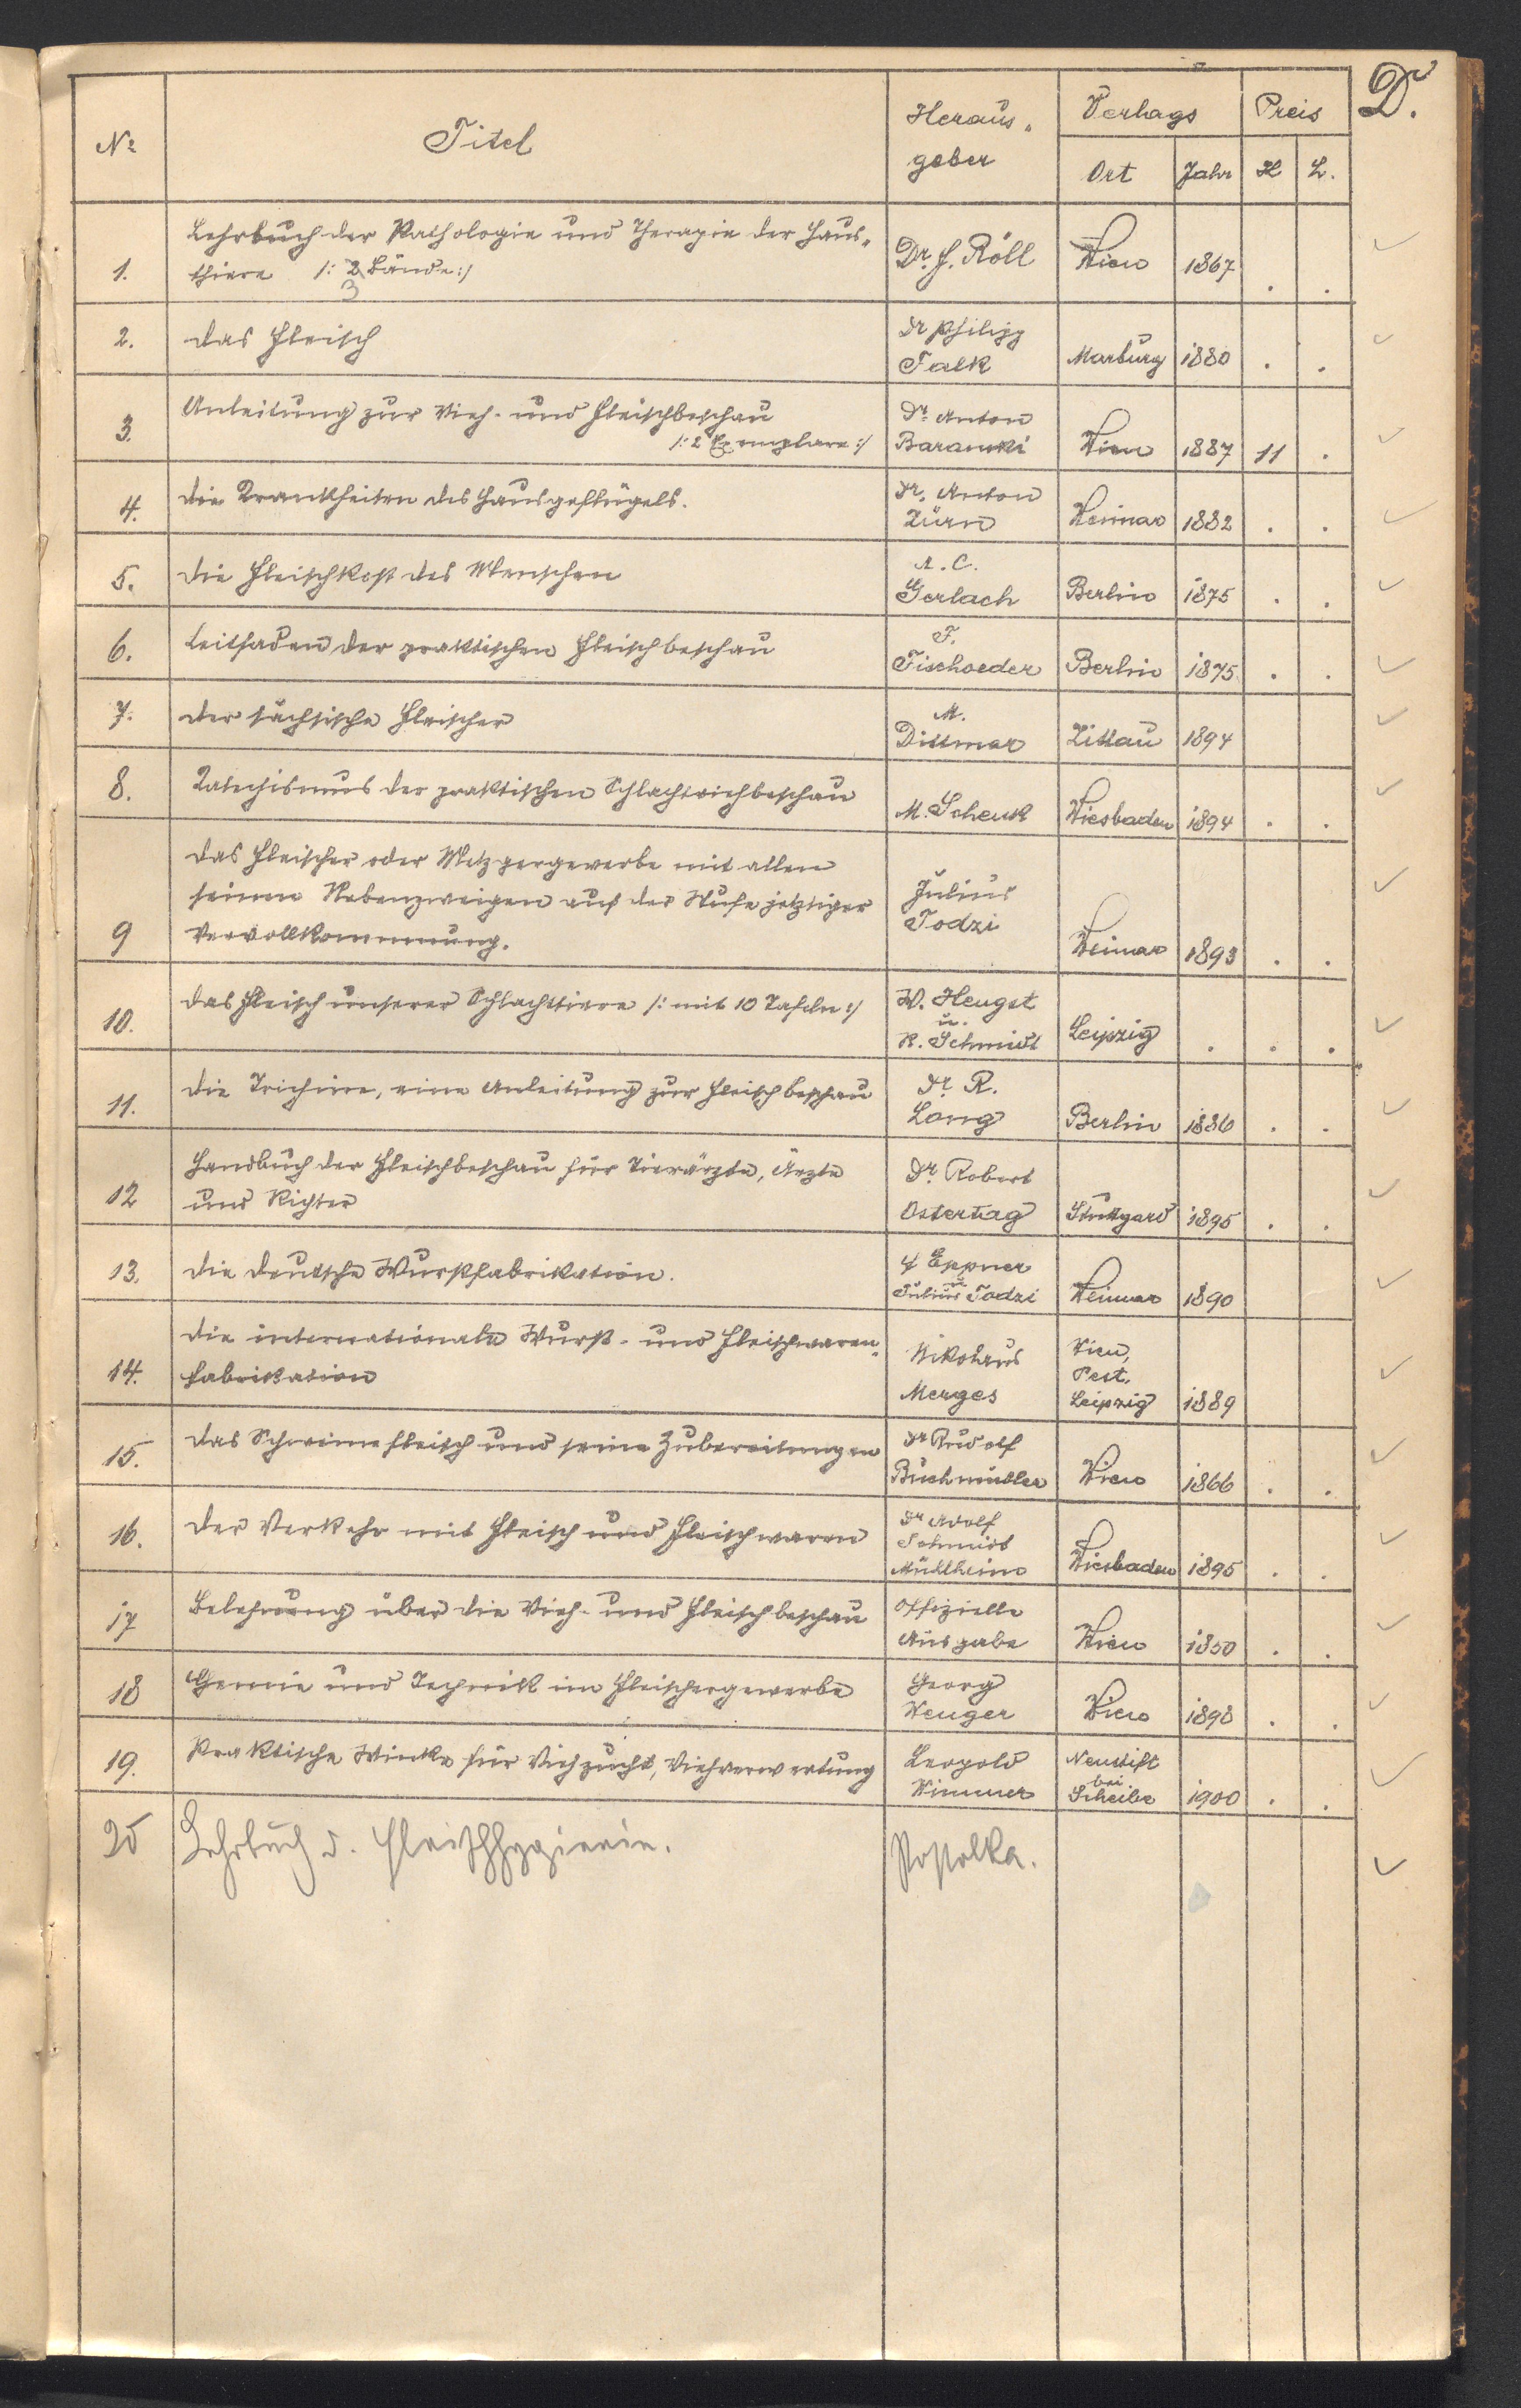 D.
Nr Titel Heraus- Verlags Preis
geber Ort Jahr K h.
Lehrbuch der Pathologie und Therapie der Haus-
1. thiere /: 2 Bände :/ Dr. J. Röll Wien 1867 . .
3
2. Das Fleisch Dr Philipp
Falk Marburg 1880 . .
3. Anleitung zur Vieh- und Fleischbeschau Dr. Anton
/: 2 Exemplare :/ Baranski Wien 1887 11 .
4. Die Krankheiten des Hausgeflügels. Dr. Anton
Zürn Weimar 1882 . .
5. Die Fleischkost des Menschen A. C.
Gerlach Berlin 1875 . .
6. Leitfaden der praktischen Fleischbeschau F.
Fischoeder Berlin 1875 . .
7. Der sächsische Fleischer M.
Dittmar Zittau 1894
8. Katechismus der praktischen Schlachtviehbeschau
M. Schenk Wiesbaden 1894 . .
Das Fleischer oder Metzgergewerbe mit allen
seinen Nebenzweigen auf der Stufe jetztiger Julius
9 Vervollkommnung. Todzi Weimar 1893 . .
10. Das Fleisch unserer Schlachttiere /: mit 10 Tafeln :/ W. Hengst
u.
R. Schmidt Leipzig . . .
11. Die Trichine, eine Anleitung zur Fleischbeschau Dr. R.
Long Berlin 1886 . .
Handbuch der Fleischbeschau für Tierärzte, Ärzte Dr. Robert
12 und Richter Ostertag Stuttgard 1895 . .
13. Die deutsche Wurstfabrikation. Eppner
u
Julius Todzi Weimar 1890
Die internationale Wurst- und Fleischwaren- Nikolaus Wien,
14. fabrikation Pest,
Merges Leipzig 1889
15. Das Schweinefleisch und seine Zubereitungen Dr Rudolf
Buchmüller Wien 1866 . .
16. Der Verkehr mit Fleisch und Fleischwaren Dr Adolf
Schmidt
Mühlheim Wiesbaden 1895 . .
17 Belehrung über die Vieh- und Fleischbeschau Offizielle
Ausgabe Wien 1850 . .
18 Chemie und Technik im Fleischergewerbe Georg
Wenger Wien 1898 . .
19. Praktische Winke für Viehzucht, Viehverwertung Leopold Neustift
bei
Wimmer Scheibe 1900 . .
20 Lehrbuch d. Fleischhygiene. Postolka.